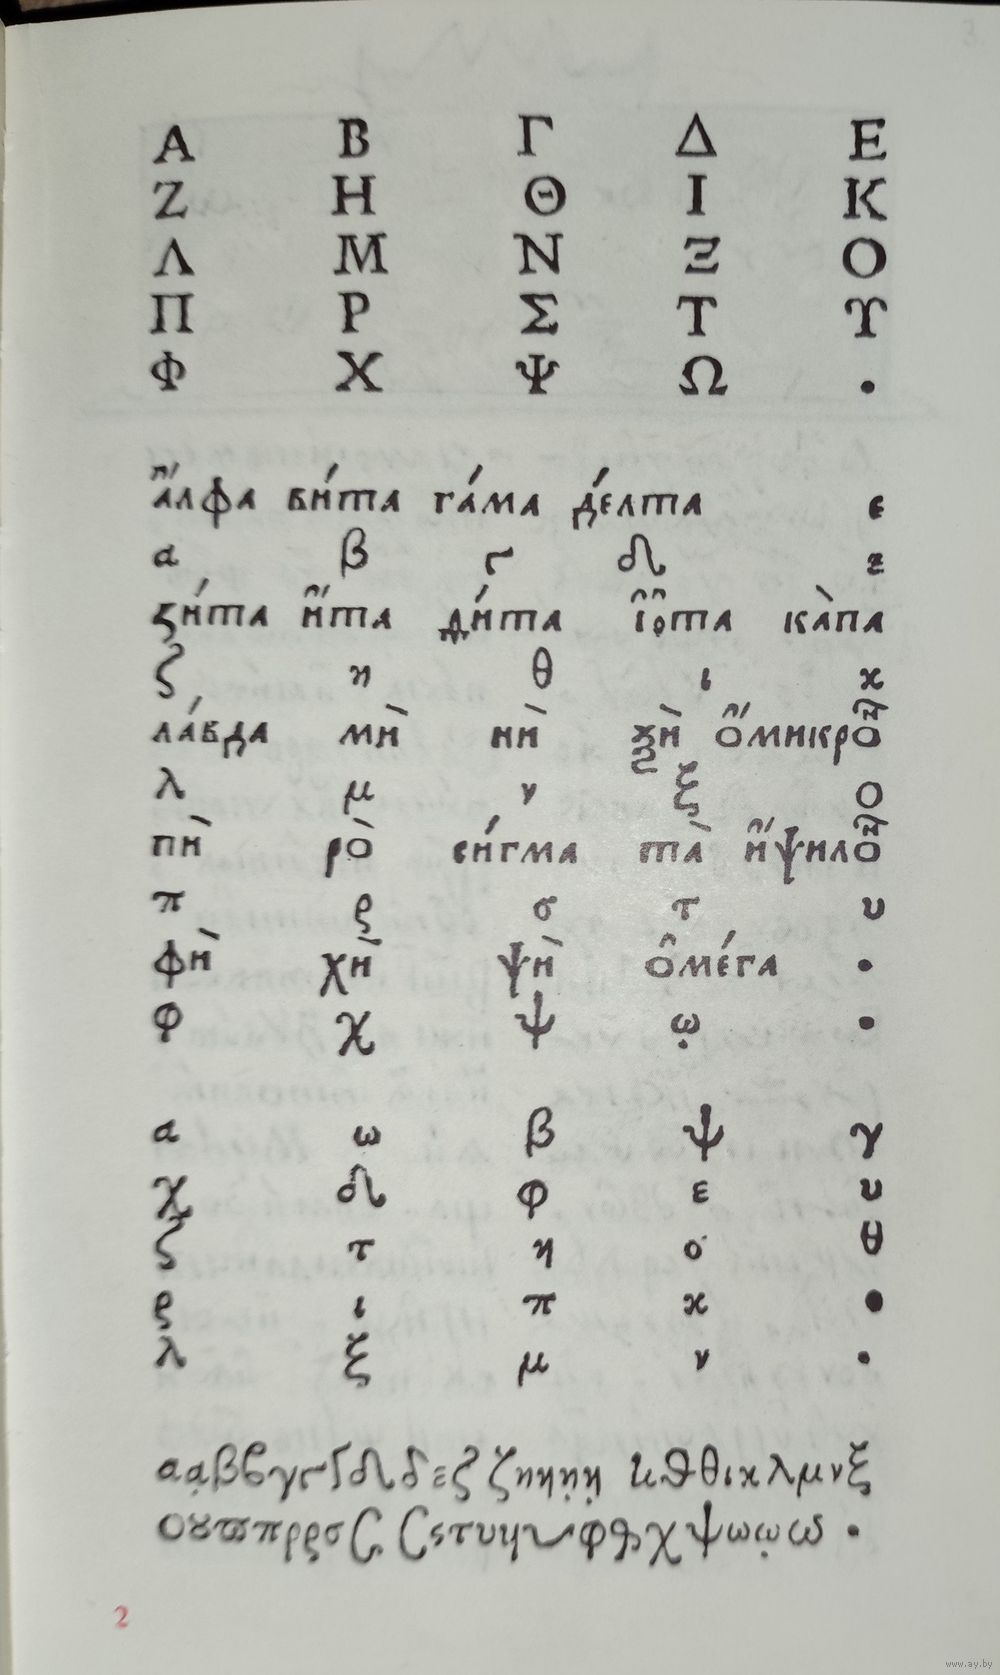 Α Β Γ Δ Ε
Ζ Η Θ Ι Κ
Λ Μ Ν Ξ Ο
Π Ρ Σ Τ ϒ
Φ Χ Ψ Ω •
а҆́лфа ви́та га́ма де́лта е
α β γ δ ε
ꙁи́та и҆́та ди́та і҆ѡ҆та ка̀па
ζ η θ ι κ
ла́вда мѝ нѝ ѯѝ о҆́микро
λ μ ν ξ ο
пѝ ро̀ си́гма та̀ и҆́ѱило
π ϱ σ τ υ
фѝ хѝ ѱѝ о҆ме́га •
φ χ ψ ῳ •
α ω β ψ γ
χ δ φ ε υ
ζ τ η ο θ
ϱ ι π κ •
λ ξ μ ν •
αᾳββγγΓδδεζζηηῃῃ κϑθικλμνξ
οȣϖπρϱσϹϹςτυηυφφχψωῳω •
2
www.ay.by